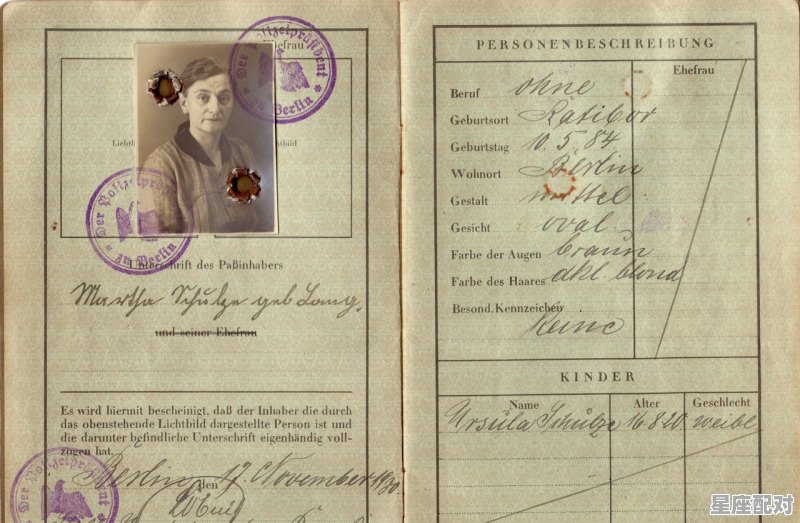 Der Polizeipräsident
zu Berlin
Ehefrau
Lichtbild
Der Polizeipräsident
zu Berlin
Unterschrift des Paßinhabers
Martha Schulze geb. Lang.
und seiner Ehefrau
Es wird hiermit bescheinigt, daß der Inhaber die durch
das obenstehende Lichtbild dargestellte Person ist und
die darunter befindliche Unterschrift eigenhändig voll-
zogen hat.
Berlin, den 17. November 1930
Der Polizeipräsident
PERSONENBESCHREIBUNG
Ehefrau
Beruf ohne
Geburtsort Ratibor
Geburtstag 10.5.84
Wohnort Berlin
Gestalt mittel
Gesicht oval
Farbe der Augen braun
Farbe des Haares dkl. blond
Besond. Kennzeichen
Keine
KINDER
Name Alter Geschlecht
Ursula Schulze 16.8.20 weibl.
星座配对